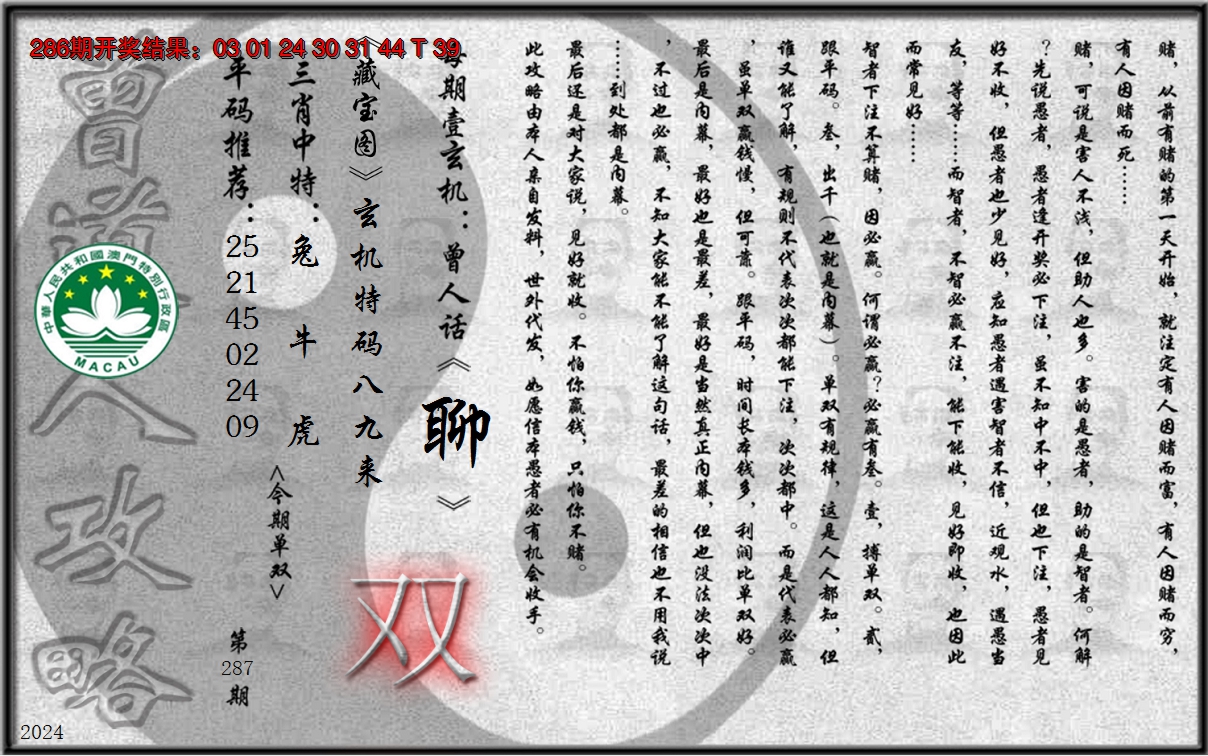 286期开奖结果：03 01 24 30 31 44 T 39
赌，从前有赌的第一天开始，就注定有人因赌而富，有人因赌而穷，
有人因赌而死……
赌，可说是害人不浅，但助人也多。害的是愚者，助的是智者。何解
？先说愚者，愚者逢开奖必下注，虽不知中不中，但也下注，愚者见
好不收，但愚者也少见好，应知愚者遇害智者不信，近观水，遇愚当
友，等等……而智者，不智必赢不注，能下能收，见好即收，也因此
而常见好……
智者下注不算赌，因必赢。何谓必赢？必赢有叁。壹，搏单双。贰，
跟平码。叁，出千（也就是内幕）。单双有规律，这是人人都知，但
谁又能了解，有规则不代表次次都能下注，次次都中。而是代表必赢
，虽单双赢钱慢，但可靠。跟平码，时间长本钱多，利润比单双好。
最后是内幕，最好也是最差，最好是当然真正内幕，但也没法次次中
，不过也必赢，不知大家能不能了解这句话，最差的相信也不用我说
……到处都是内幕。
最后还是对大家说，见好就收。不怕你赢钱，只怕你不赌。
此攻略由本人亲自发料，世外代发，如愿信本愚者必有机会收手。
每期壹玄机：曾人话《聊》
《藏宝图》玄机特码八九来
双
三肖中特：兔 牛 虎
<今期单双>
平码推荐：25 21 45 02 24 09
第287期
曾道人攻略
中華人民共和國澳門特別行政區
MACAU
2024